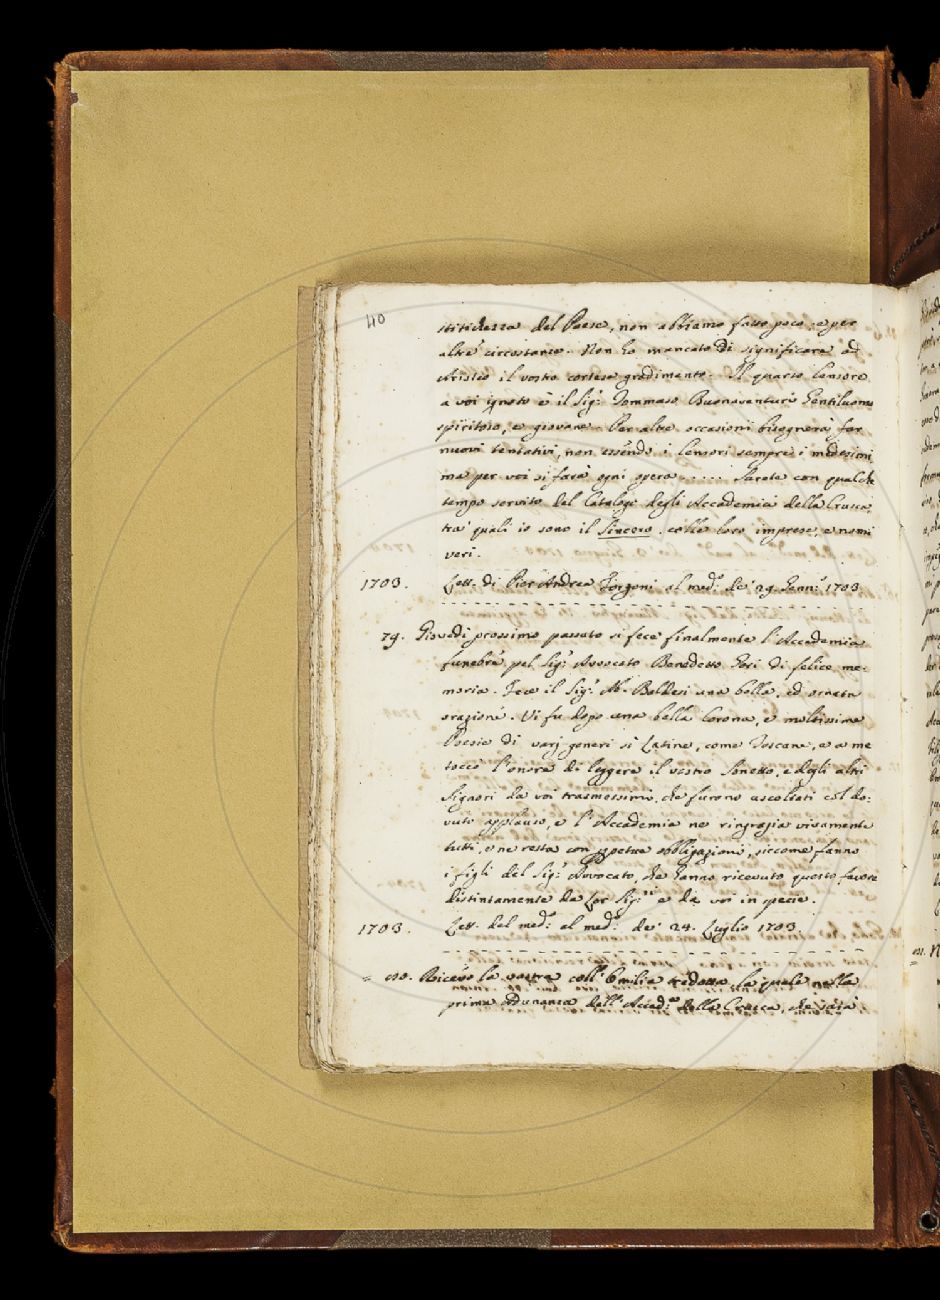 40
stitichezza del Paese, non abbiamo fatto poco, e per
altre circostanze. Non ho mancato di significare ad
Aristeo il vostro cortese gradimento. Il quarto Censore
a voi ignoto è il Sig.r Tommaso Buonaventuri Gentiluomo
spiritoso, e giovane. Per altre occasioni bisognerà far
nuovi tentativi, non essendo i Censori sempre i medesimi
ma per voi si farà ogni opera ..... Sarete con qualche
tempo servito del Catalogo degli Accademici della Crusca
tra' quali io sono il Sincero, colle loro imprese, e nomi
veri.
1703. Lett. di Pier Andrea Forzoni al med.o de' 29. Genn.o 1703
79. Giovedì prossimo passato si fece finalmente l'Accademia
funebre pel Sig.r Avvocato Benedetto Gori di felice me-
moria. Fece il Sig.r Ab. Baldesi una bella, ed ornata
orazione. Vi fu dopo una bella Corona, e moltissime
Poesie di varj generi sì Latine, come Toscane, e a me
toccò l'onore di leggere il vostro Sonetto, e degli altri
Signori da voi trasmessimi, che furono ascoltati col do-
vuto applauso, e l'Accademia ne ringrazia vivamente
tutti, e ne resta con perpetua obbligazione, siccome fanno
i figli del Sig.r Avvocato, che hanno ricevuto questo favore
distintamente da Lor Sig.ri e da voi in specie.
1703. Lett. del med.o al med.o de' 24. Luglio 1703.
= Ricevo la vostra coll'Emilia ridotta, la quale nella
prima Adunanza dell'Accad.a della Crusca, che sarà